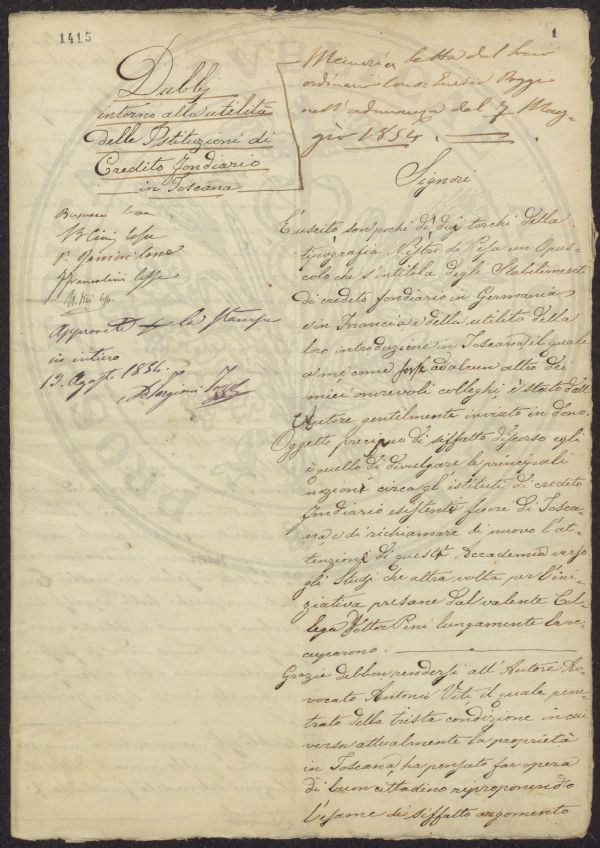 1415
1
Dubbj
intorno alla utilità
delle Istituzioni di
Credito Fondiario
in Toscana
Memoria letta dal Socio
ordinario Cons. Enrico Poggi
nell'adunanza del 7 Mag-
gio 1854.
Signori
lesse
lesse
Approvata per la Stampa
in intiero
19. Agosto 1854.
È uscito son pochi dì dai torchi della
tipografia Nistri di Pisa un Opus-
colo che s'intitola degli Stabilimenti
di credito fondiario in Germania
e in Francia e della utilità della
loro introduzione in Toscana, il quale
a me come forse ad alcun altro dei
miei onorevoli colleghi, è stato dall'
Autore gentilmente inviato in dono.
Oggetto precipuo di siffatto discorso egli
è quello di divulgare le principali
nozioni circa gl'istituti di credito
fondiario esistenti fuori di Tosca-
na e di richiamare di nuovo l'at-
tenzione di questa Accademia verso
gli Studj che altra volta per l'ini-
ziativa presane dal valente Col-
lega Dottor Pini lungamente la oc-
cuparono.
Grazie debbon rendersi all'Autore Av-
vocato Antonio Viti il quale pene-
trato della trista condizione in cui
versa attualmente la proprietà
in Toscana, ha pensato far opera
di buon cittadino riproponendo
l'esame di siffatto argomento